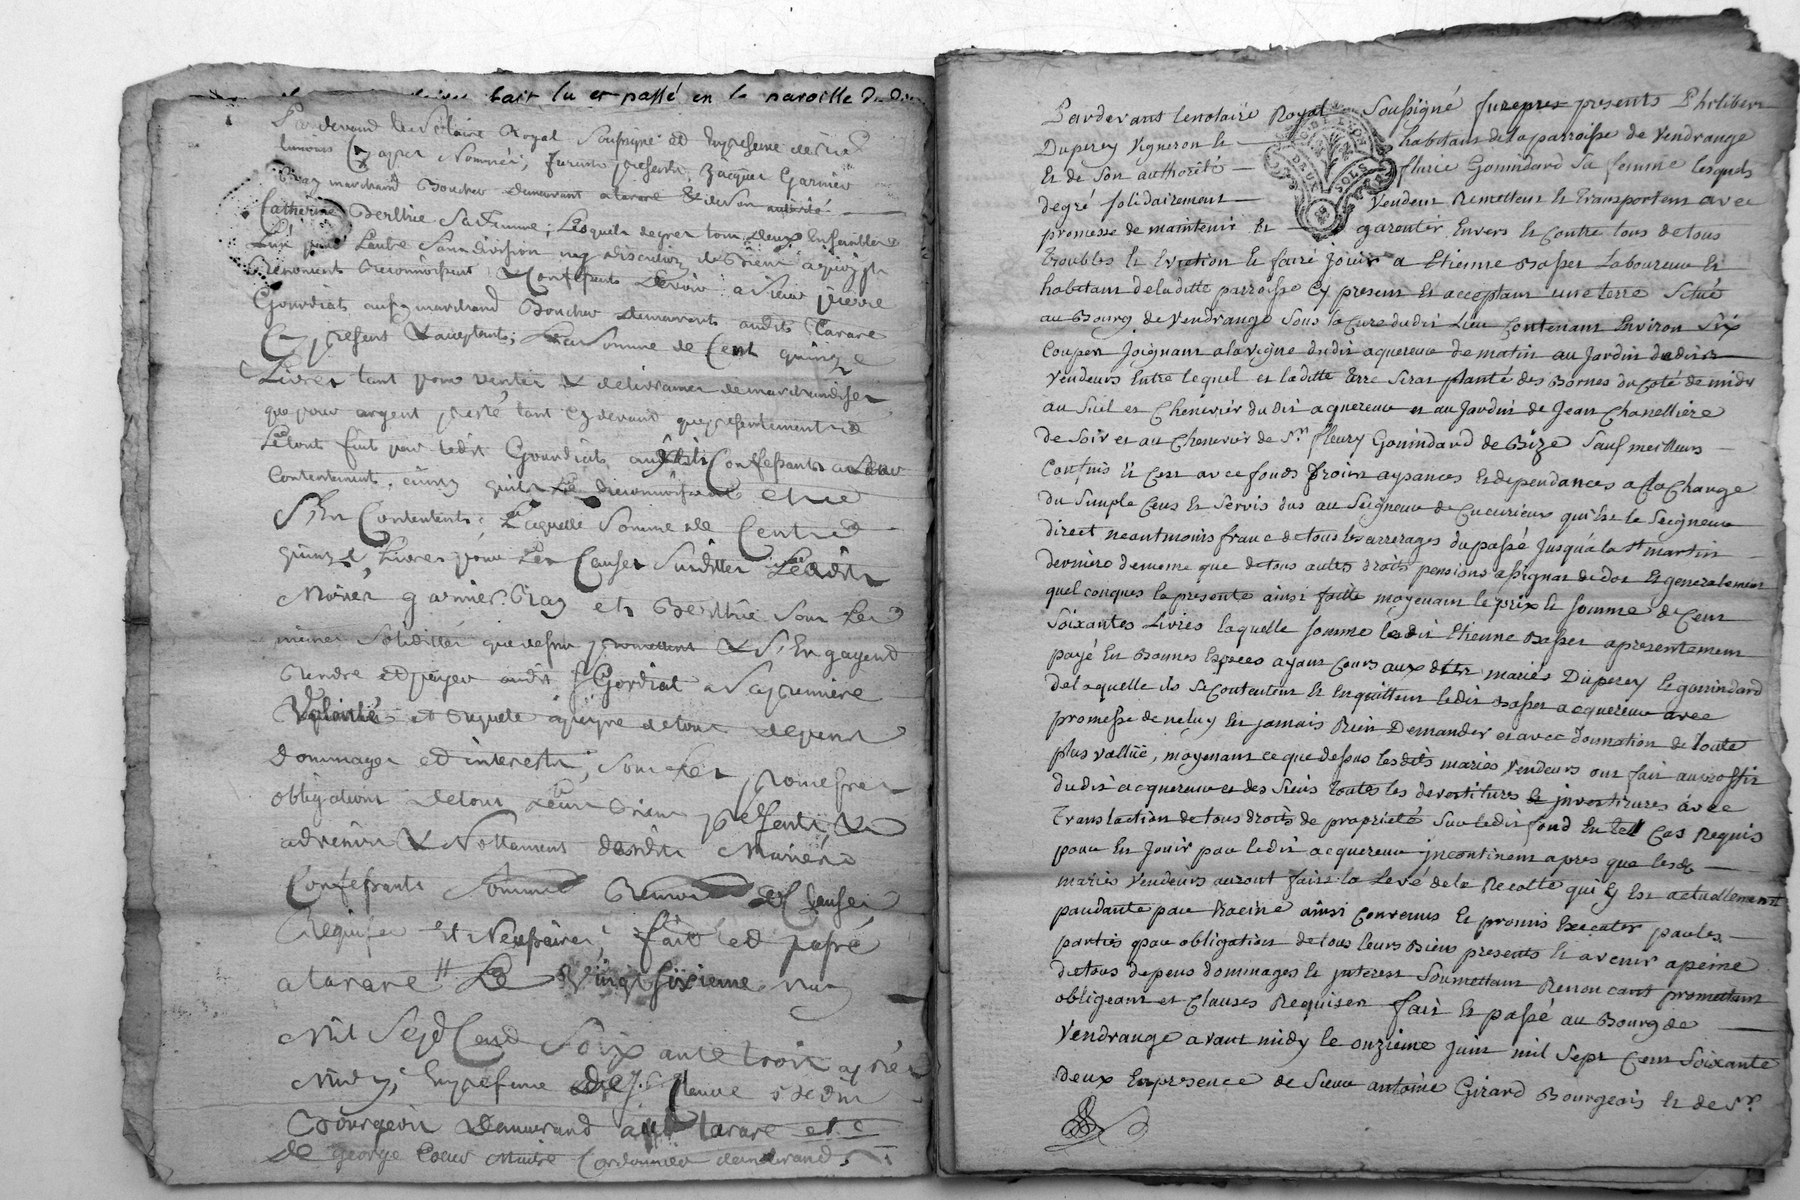 fait lu et passé en la paroisse du
Pardevand le Notaire Royal Soussigné et En presence des
temoins Cy apres Nommés, furents presents, Jacques Garnier
marchand Boucher demeurant a tarare & de son autorité
Catherine Berthie Sa femme; Lesquels de gres tous deux Ensembles
L'un pour L'autre Sans division ny discution de Biens a quoy ils
Renoncent Reconnoissent & Confessent Devoir a Sieur pierre
Gourdiat aussy marchand Boucher demeurant audit Tarare
Cy present & acceptant; La Somme de Cent quinze
Livres tant pour ventes & delivrances de marchandises
que pour argent presté tant Cy devand que presentement
Le tout fait par ledit Gourdiat auxdits Confessants a Leur
Contentement, ainsy qu'ils Le Reconnoissent et se
S'En Contentents; Laquelle Somme de Cent
quinze Livres pour Les Causes Susdittes Lesdits
Mariés garnier et Berthie Sous Les
mêmes Soliditté que dessus promettent & S'Engagent
Rendre et payer audit Sr Gordiat a Sa premiere
Volonté et Requete a peyne de tous depens
Dommages et interests, Sous Les promesses
obligations de tous Leurs Biens presents &
advenir & Nottament desdits Mariés
Confessants Somme Renon & Clauses
Requises Et Necessaires; fait et passé
a tarare Le Vingt Sixieme may
Mil Sept Cend Soixante trois apres
Midy; En presence de Sr fleury
Bourgeois Demeurand audit tarare et
De George Coeur Maitre Cordonnier demeurand
Pardevant le notaire Royal Soussigné furepres presents Philibert
Duperey Vigneron & habitant de la parroisse de Vendrange
Et de Son authorité flurie Gonindard Sa femme lesquels
de gré solidairement Vendent Remettent Et transportent avec
promesse de maintenir Et garentir Envers Et Contre tous de tous
Troubles Et Eviction Et faire Jouir a Etienne Basset Laboureur Et
habitant de la ditte parroisse Cy present Et acceptant une terre Situé
au Bourg de Vendrange Sous la Cure dudit Lieu Contenant Environ Six
Coupes Joignant a la vigne dudit aquereur de matin au Jardin desdits
Vendeurs Entre lequel et la ditte terre Seras planté des Bornes du Coté de midy
au Suil et Chenevier du dit aquereur et au Jardin de Jean Chanellière
de Soir et au Chenevier de Sr. fleury Gonindard de Bize Sauf meilleurs
Confins Et Cest avec fonds froins aysances Et dependances a la Charge
du Simple Cens Et Servis dus au Seigneur de Cucurieux qui Est le Seigneur
direct neantmoins franc de tous les arrerages du passé Jusqu'a la St martin
derniere de meme que de tous autres droits pensions assignat de dot Et generalement
quel conques la presente ainsi faitte moyenant le prix Et somme de Cent
Soixantes Livres laquelle somme ledit Etienne Basset a presentement
payé En Bonnes Especes ayant Cours aux dits mariés Duperey Et gonindard
de laquelle ils Se Contentent Et En quittent ledit Basset acquereur avec
promesse de ne luy En jamais Rien Demander et avec donnation de toute
plus vallüe, moyenant ce que dessus lesdits mariés Vendeurs ont fait au proffit
dudit acquereur et des Siens toutes les devestitures & investitures avec
Translaction de tous droits de proprieté Sur ledit fond En tel Cas Requis
pour En Jouir par ledit acquereur incontinent apres que lesd
mariés Vendeurs auront faits la Levé de la Recolte qui y Est actuellement
pendante par Racine ainsi Convenus Et promis Executer par les
parties par obligation de tous leurs Biens presents Et avenir a peine
de tous depens dommages Et interest Soumettant Renoncant promettant
obligeant et Clauses Requises fait Et passé au Bourg de
Vendrange avant midy le onzieme Juin mil Sept Cent Soixante
deux En presence de Sieur antoine Girard Bourgeois Et de Sr.
DEUX SOLS